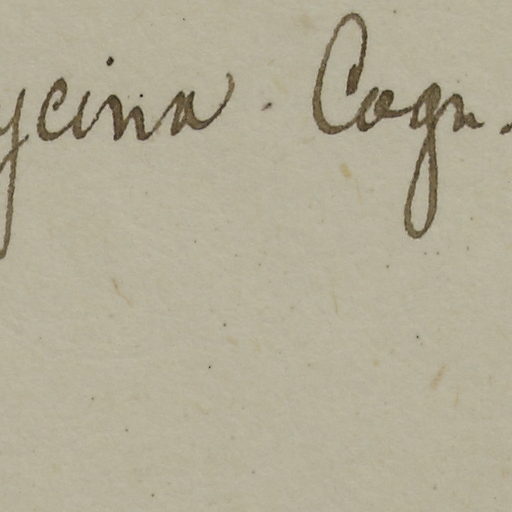 ycina. Cogn.